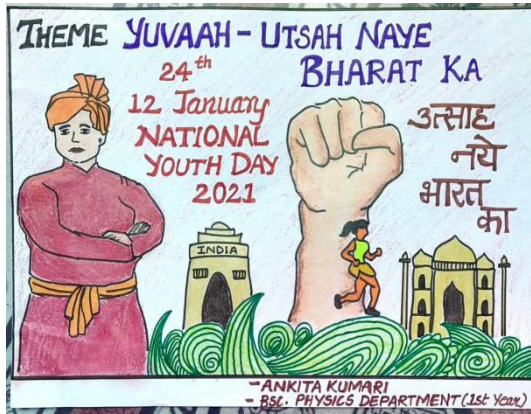 THEME YUVAAH - UTSAH NAYE
BHARAT KA
24th
12 January
NATIONAL
YOUTH DAY
2021
उत्साह
नये
भारत
का
INDIA
-ANKITA KUMARI
- BSC. PHYSICS DEPARTMENT (1st Year)